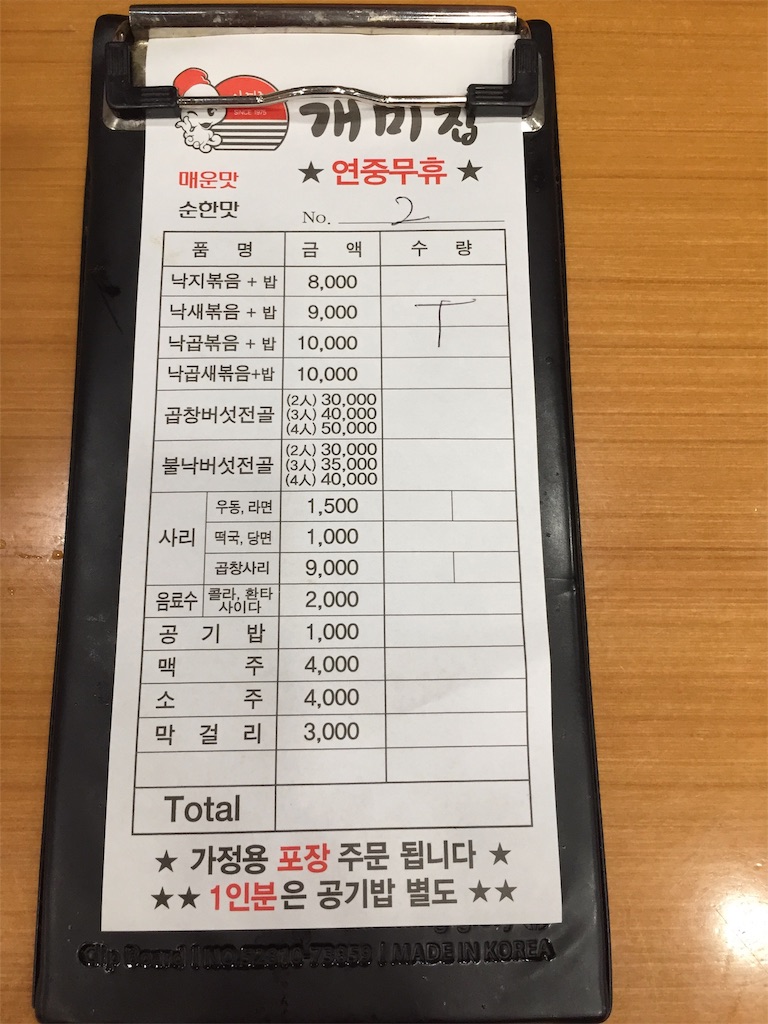 SINCE 1975
개미집
매운맛
★ 연중무휴 ★
순한맛
No. 2
품 명 금 액 수 량
낙지볶음 + 밥 8,000
낙새볶음 + 밥 9,000 T
낙곱볶음 + 밥 10,000
낙곱새볶음+밥 10,000
곱창버섯전골 (2人) 30,000
(3人) 40,000
(4人) 50,000
불낙버섯전골 (2人) 30,000
(3人) 35,000
(4人) 40,000
사리 우동, 라면 1,500
떡국, 당면 1,000
곱창사리 9,000
음료수 콜라, 환타 사이다 2,000
공 기 밥 1,000
맥 주 4,000
소 주 4,000
막 걸 리 3,000
Total
★ 가정용 포장 주문 됩니다 ★
★★ 1인분은 공기밥 별도 ★★
MADE IN KOREA